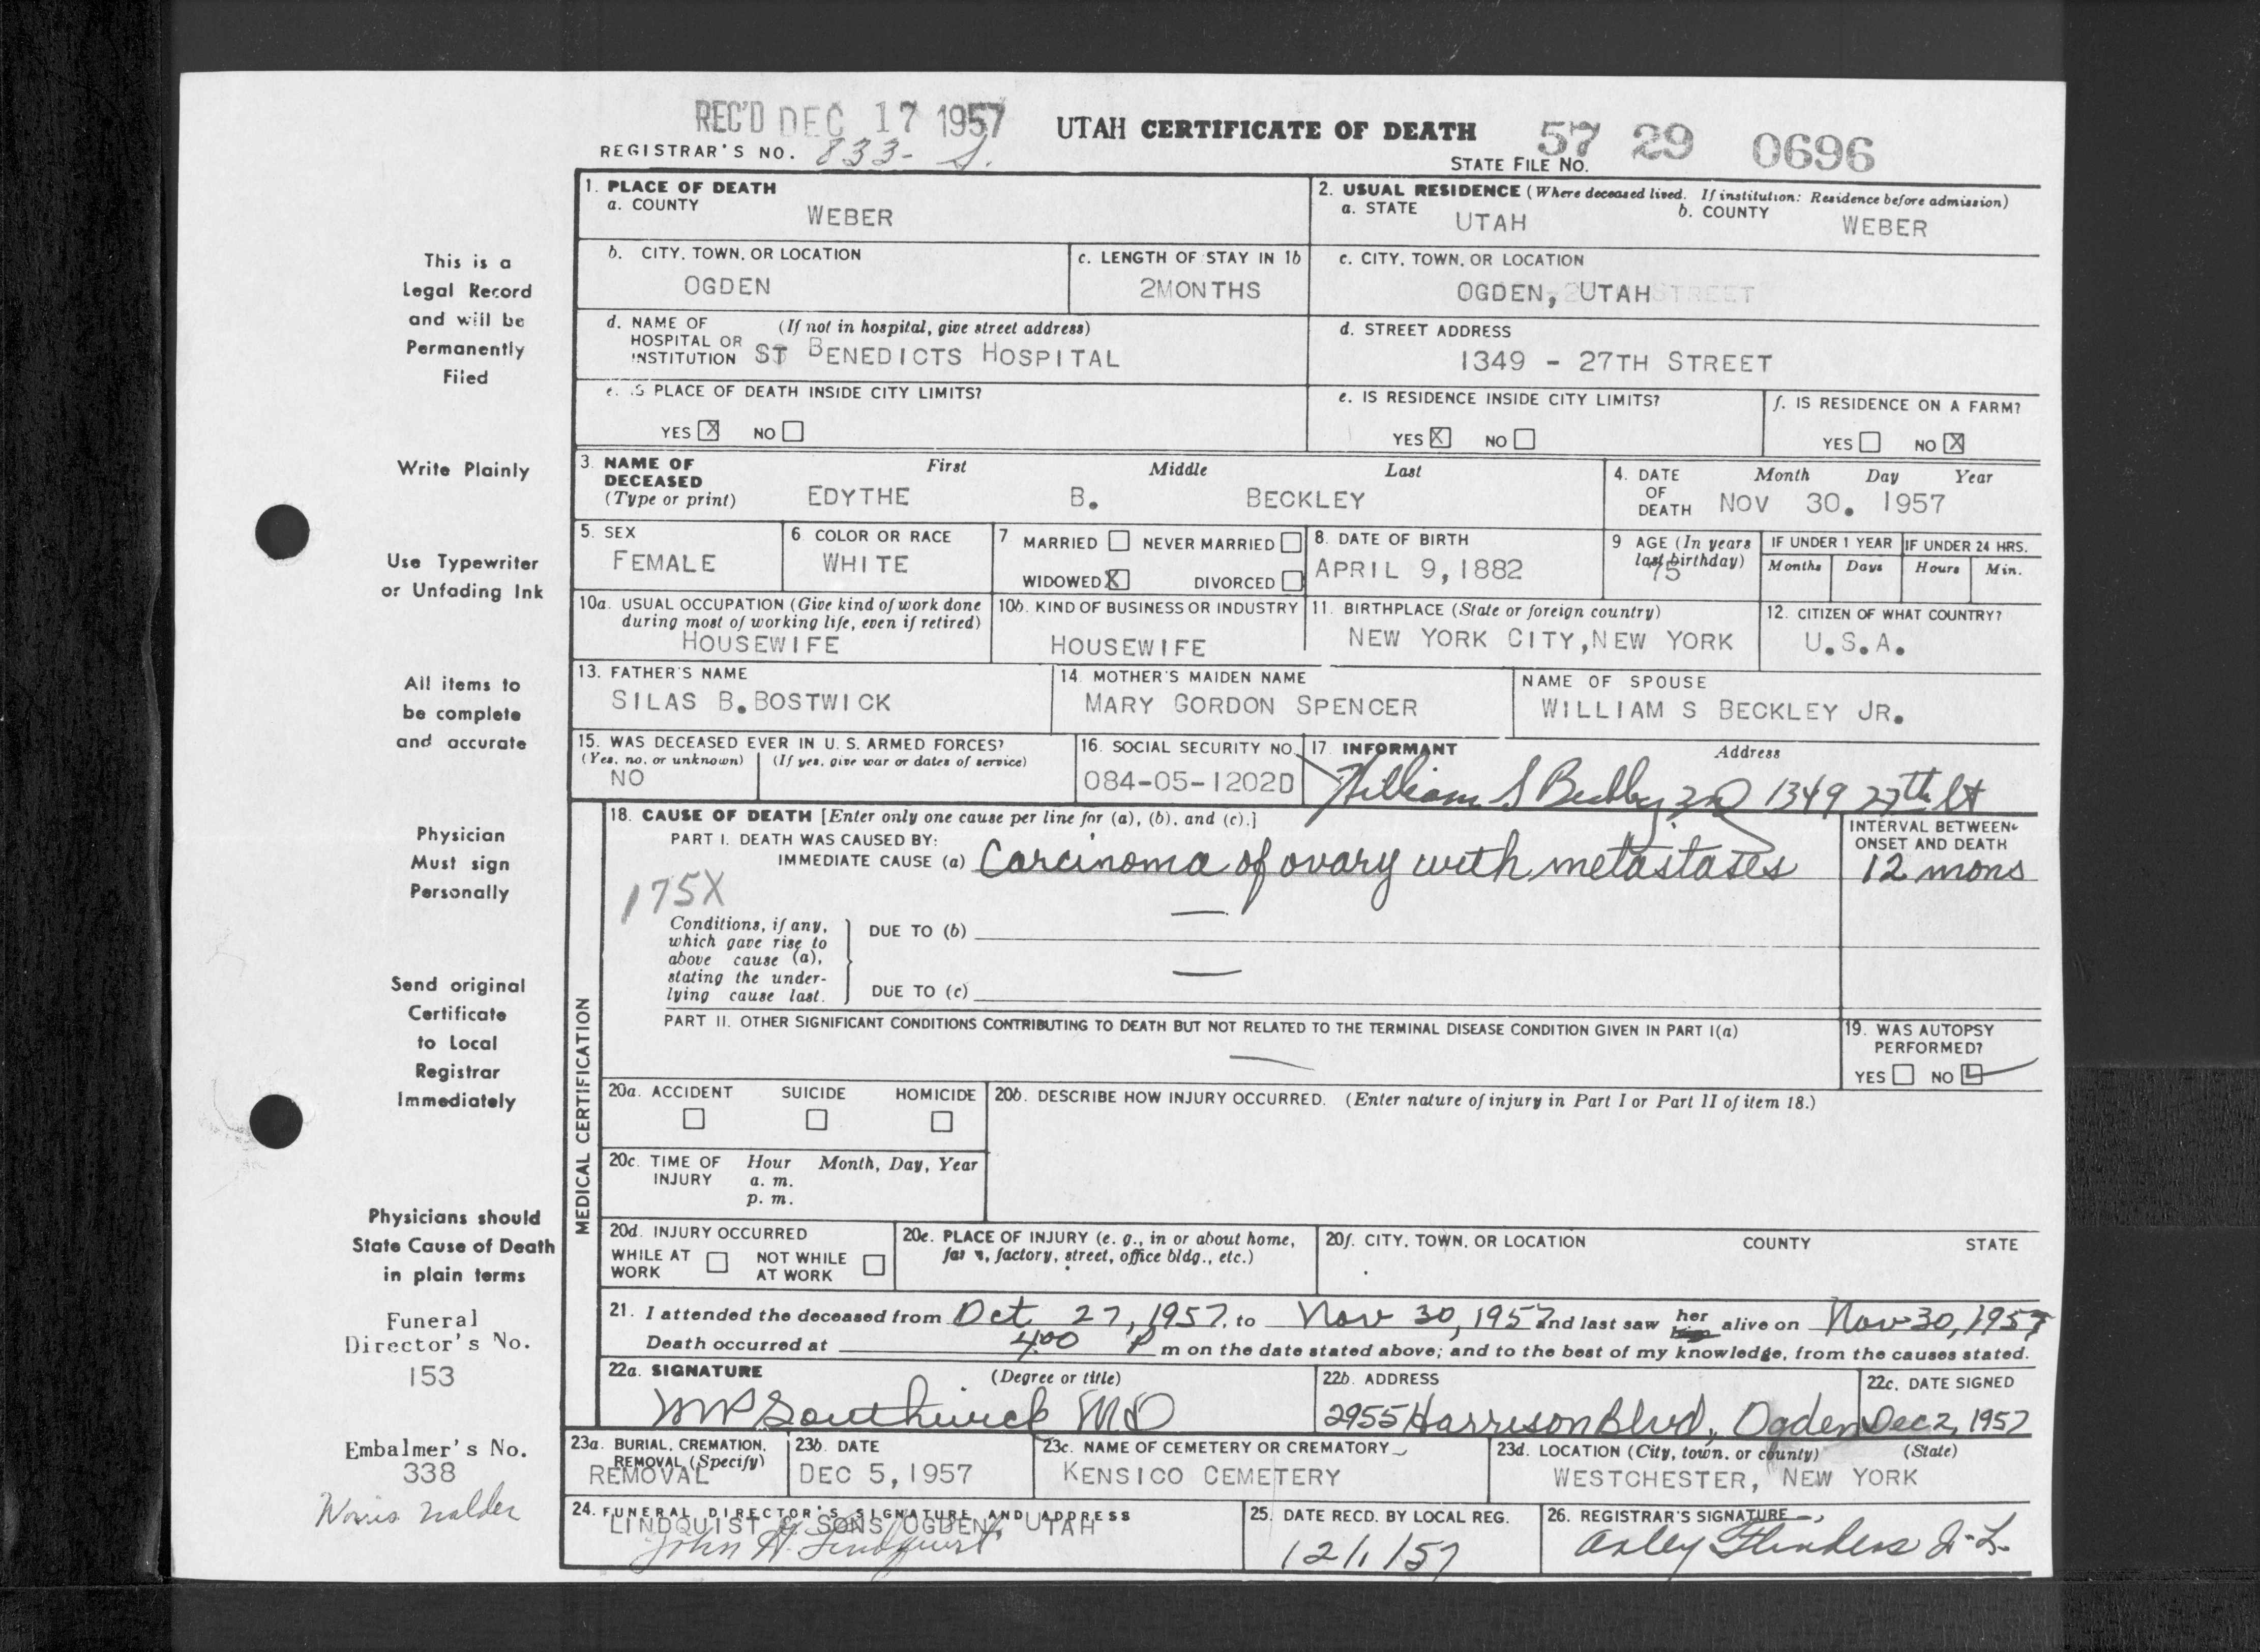 REC'D DEC 17 1957 UTAH CERTIFICATE OF DEATH 57 29 0696
REGISTRAR'S NO. 833- S. STATE FILE NO.
1. PLACE OF DEATH
a. COUNTY
WEBER
2. USUAL RESIDENCE (Where deceased lived. If institution: Residence before admission)
a. STATE b. COUNTY
UTAH WEBER
b. CITY, TOWN, OR LOCATION
OGDEN
c. LENGTH OF STAY IN 1b
2MONTHS
c. CITY, TOWN, OR LOCATION
OGDEN, UTAH STREET
d. NAME OF HOSPITAL OR INSTITUTION (If not in hospital, give street address)
ST BENEDICTS HOSPITAL
d. STREET ADDRESS
1349 - 27TH STREET
e. IS PLACE OF DEATH INSIDE CITY LIMITS?
YES X NO
e. IS RESIDENCE INSIDE CITY LIMITS?
YES X NO
f. IS RESIDENCE ON A FARM?
YES NO X
3. NAME OF DECEASED (Type or print) First Middle Last
EDYTHE B. BECKLEY
4. DATE OF DEATH Month Day Year
NOV 30. 1957
5. SEX
FEMALE
6 COLOR OR RACE
WHITE
7 MARRIED NEVER MARRIED
WIDOWED X DIVORCED
8. DATE OF BIRTH
APRIL 9,1882
9 AGE (In years last birthday)
75
IF UNDER 1 YEAR IF UNDER 24 HRS.
Months Days Hours Min.
10a. USUAL OCCUPATION (Give kind of work done during most of working life, even if retired)
HOUSEWIFE
10b. KIND OF BUSINESS OR INDUSTRY
HOUSEWIFE
11. BIRTHPLACE (State or foreign country)
NEW YORK CITY,NEW YORK
12. CITIZEN OF WHAT COUNTRY?
U.S.A.
13. FATHER'S NAME
SILAS B.BOSTWICK
14. MOTHER'S MAIDEN NAME
MARY GORDON SPENCER
NAME OF SPOUSE
WILLIAM S BECKLEY JR.
15. WAS DECEASED EVER IN U. S. ARMED FORCES?
(Yes, no, or unknown) (If yes, give war or dates of service)
NO
16. SOCIAL SECURITY NO.
084-05-1202D
17. INFORMANT Address
William S Beckley 1349 27th St
18. CAUSE OF DEATH [Enter only one cause per line for (a), (b), and (c).]
PART I. DEATH WAS CAUSED BY:
IMMEDIATE CAUSE (a) Carcinoma of ovary with metastases
INTERVAL BETWEEN ONSET AND DEATH
12 mons
175X
Conditions, if any, which gave rise to above cause (a), stating the underlying cause last.
DUE TO (b) —
DUE TO (c) —
PART II. OTHER SIGNIFICANT CONDITIONS CONTRIBUTING TO DEATH BUT NOT RELATED TO THE TERMINAL DISEASE CONDITION GIVEN IN PART I(a)
—
19. WAS AUTOPSY PERFORMED?
YES NO
MEDICAL CERTIFICATION
20a. ACCIDENT SUICIDE HOMICIDE
20b. DESCRIBE HOW INJURY OCCURRED. (Enter nature of injury in Part I or Part II of item 18.)
20c. TIME OF INJURY Hour Month, Day, Year
a. m.
p. m.
20d. INJURY OCCURRED
WHILE AT WORK NOT WHILE AT WORK
20e. PLACE OF INJURY (e. g., in or about home, farm, factory, street, office bldg., etc.)
20f. CITY, TOWN, OR LOCATION COUNTY STATE
21. I attended the deceased from Oct 27, 1957, to Nov 30, 1957 and last saw her alive on Nov 30, 1957
Death occurred at 4:00 P m on the date stated above; and to the best of my knowledge, from the causes stated.
22a. SIGNATURE (Degree or title)
Southwick MD
22b. ADDRESS
2955 Harrison Blvd, Ogden
22c. DATE SIGNED
Dec 2, 1957
23a. BURIAL, CREMATION, REMOVAL (Specify)
REMOVAL
23b. DATE
DEC 5, 1957
23c. NAME OF CEMETERY OR CREMATORY
KENSICO CEMETERY
23d. LOCATION (City, town, or county) (State)
WESTCHESTER, NEW YORK
24. FUNERAL DIRECTOR'S SIGNATURE AND ADDRESS
LINDQUIST & SONS OGDEN, UTAH
John A. Lindquist
25. DATE RECD. BY LOCAL REG.
12/1/57
26. REGISTRAR'S SIGNATURE
Flinders
This is a
Legal Record
and will be
Permanently
Filed
Write Plainly
Use Typewriter
or Unfading Ink
All items to
be complete
and accurate
Physician
Must sign
Personally
Send original
Certificate
to Local
Registrar
Immediately
Physicians should
State Cause of Death
in plain terms
Funeral
Director's No.
153
Embalmer's No.
338